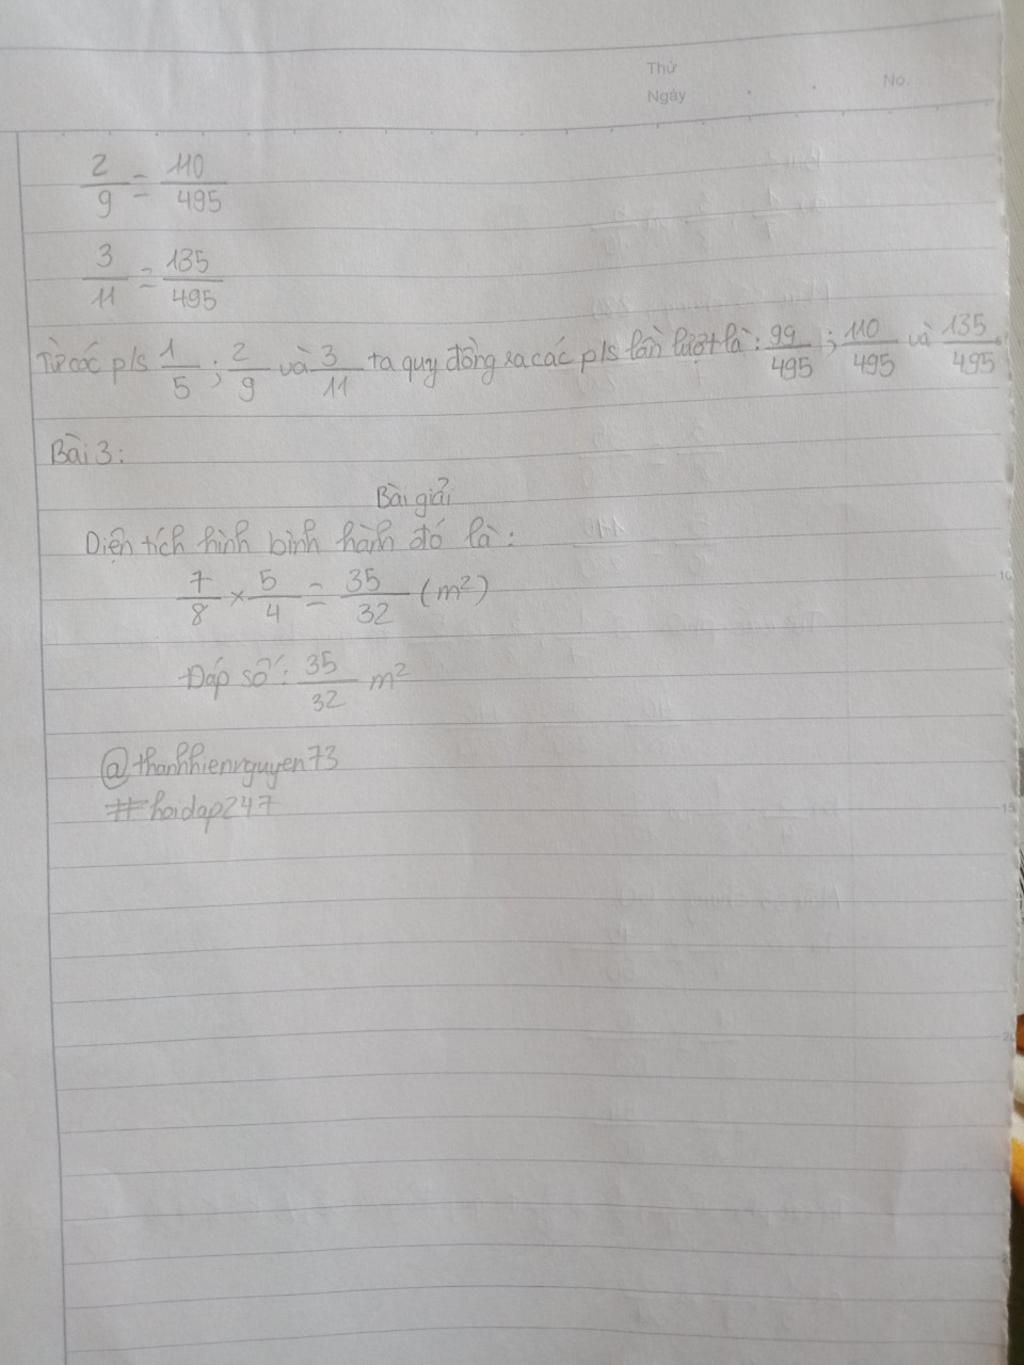 Thứ
Ngày
No.
2/9 = 110/495
3/11 = 135/495
Từ các pls 1/5 ; 2/9 và 3/11 ta quy đồng ra các pls lần lượt là : 99/495 ; 110/495 và 135/495.
Bài 3:
Bài giải
Diện tích hình bình hành đó là :
7/8 × 5/4 = 35/32 (m²)
Đáp số : 35/32 m²
@thanhhiennguyen73
#hoidap247
10
15
20